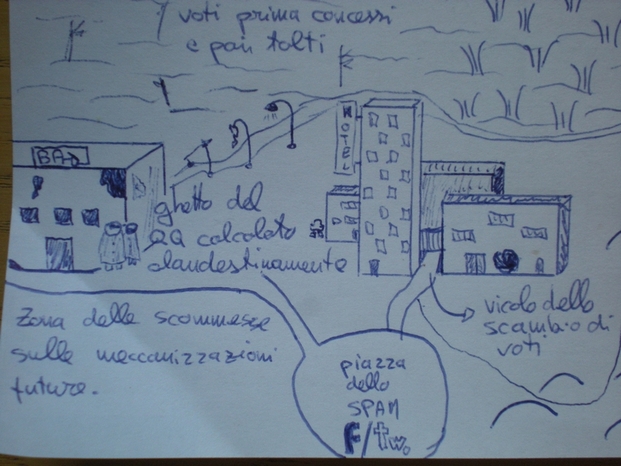 voti prima concessi
e poi tolti
HOTEL
BAR
ghetto del
QA calcolato
clandestinamente
Zona delle scommesse
sulle meccanizzazioni
future.
vicolo dello
scambio di
voti
piazza
dello
SPAM
F/tw.